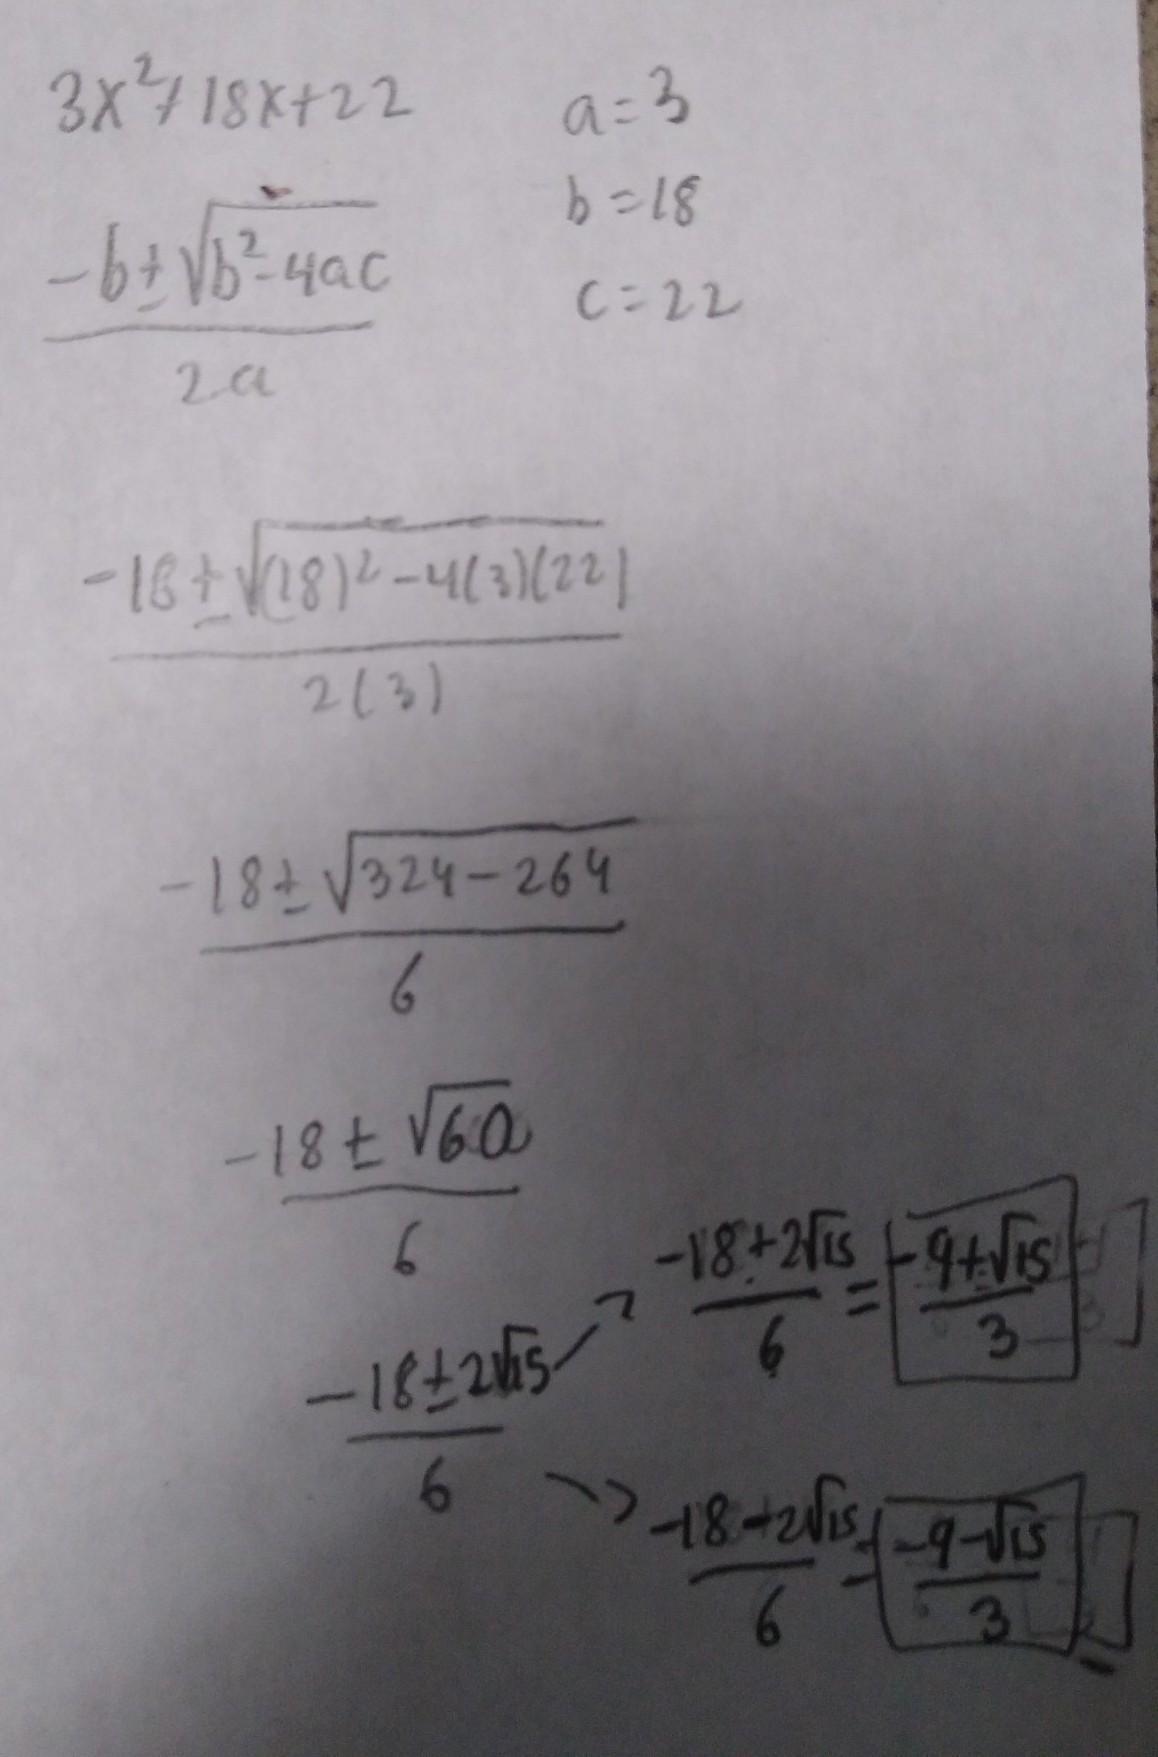 3x²+18x+22
a=3
b=18
c=22
-b±√b²-4ac
2a
-18±√(18)²-4(3)(22)
2(3)
-18±√324-264
6
-18±√60
6
-18±2√15
6
-18+2√15 = -9+√15
6 3
-18-2√15 = -9-√15
6 3